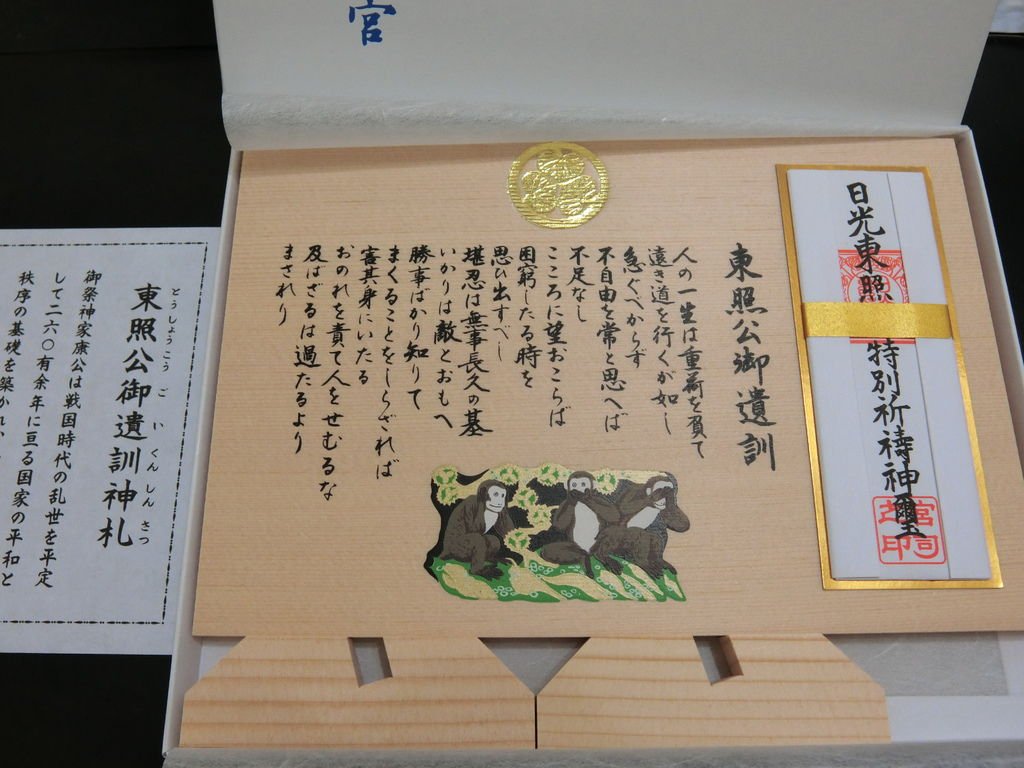 宮
日光東照
特別祈祷神璽
宮司之印
東照公御遺訓
人の一生は重荷を負て
遠き道を行くが如し
急ぐべからず
不自由を常と思へば
不足なし
こころに望おこらば
困窮したる時を
思ひ出すべし
堪忍は無事長久の基
いかりは敵とおもへ
勝事ばかり知りて
まくることをしらざれば
害其身にいたる
おのれを責て人をせむるな
及ばざるは過たるより
まされり
とうしょうこうごいくんしんさつ
東照公御遺訓神札
御祭神家康公は戦国時代の乱世を平定
して二六〇有余年に亘る国家の平和と
秩序の基礎を築かれ